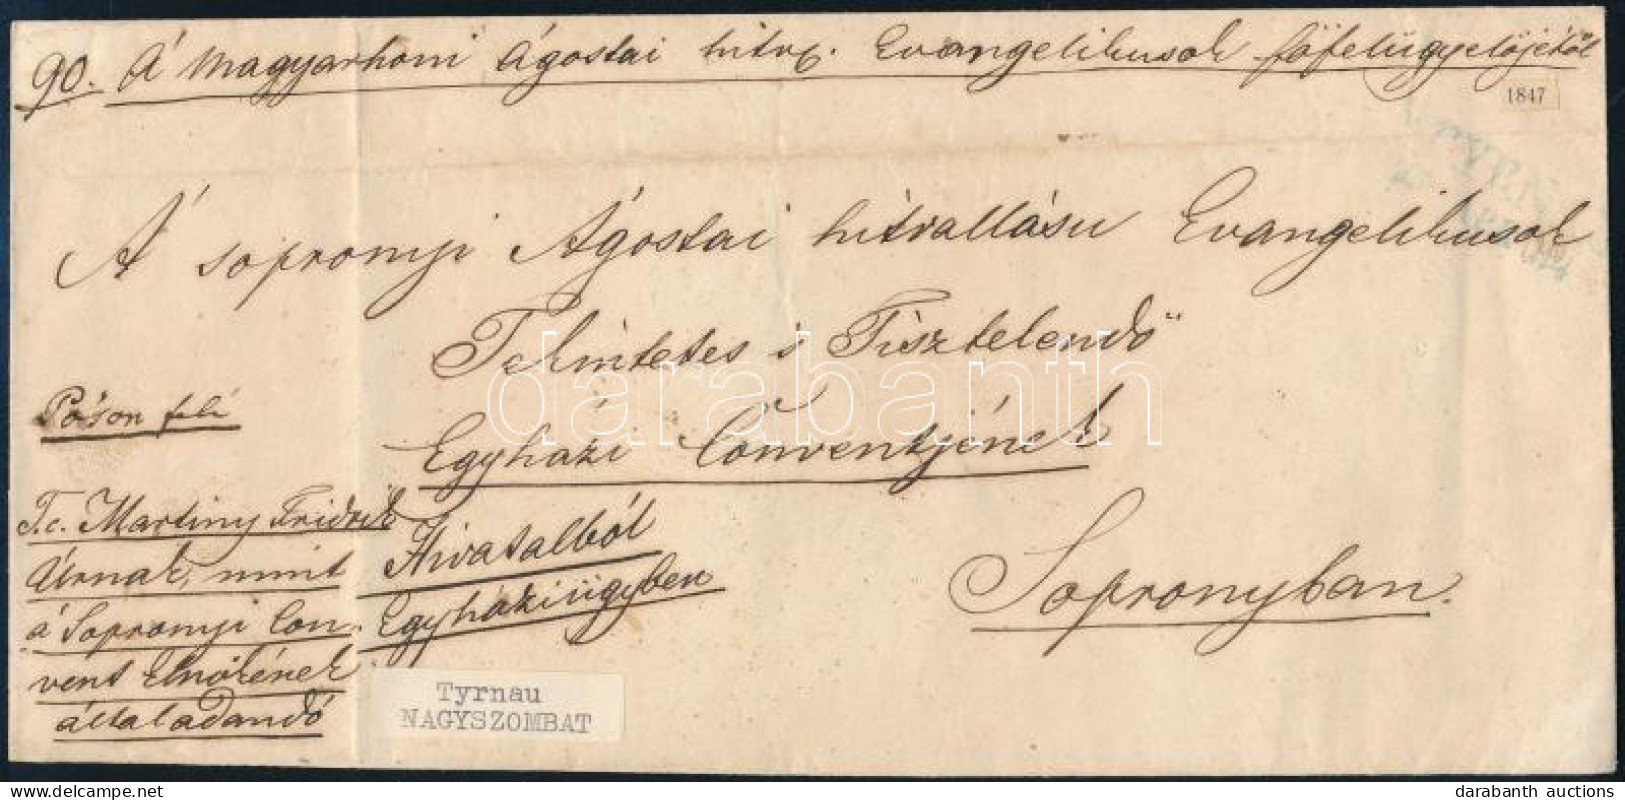 90. A Magyarhoni Ágostai hitv. Evangelikusok főfelügyelőjétől
1847
TYRN
A' sopronyi Ágostai hitvallásu Evangelikusok
Tekintetes s Tisztelendő
Egyházi Conventjének
Póson felé
T.c. Martiny Fridrik
Úrnak, mint
á Sopronyi Con-
vent Elnökének
általadandó
Hivatalból
Egyházi ügyben
Sopronyban.
Tyrnau
NAGYSZOMBAT
darabanth
darabanth auctions